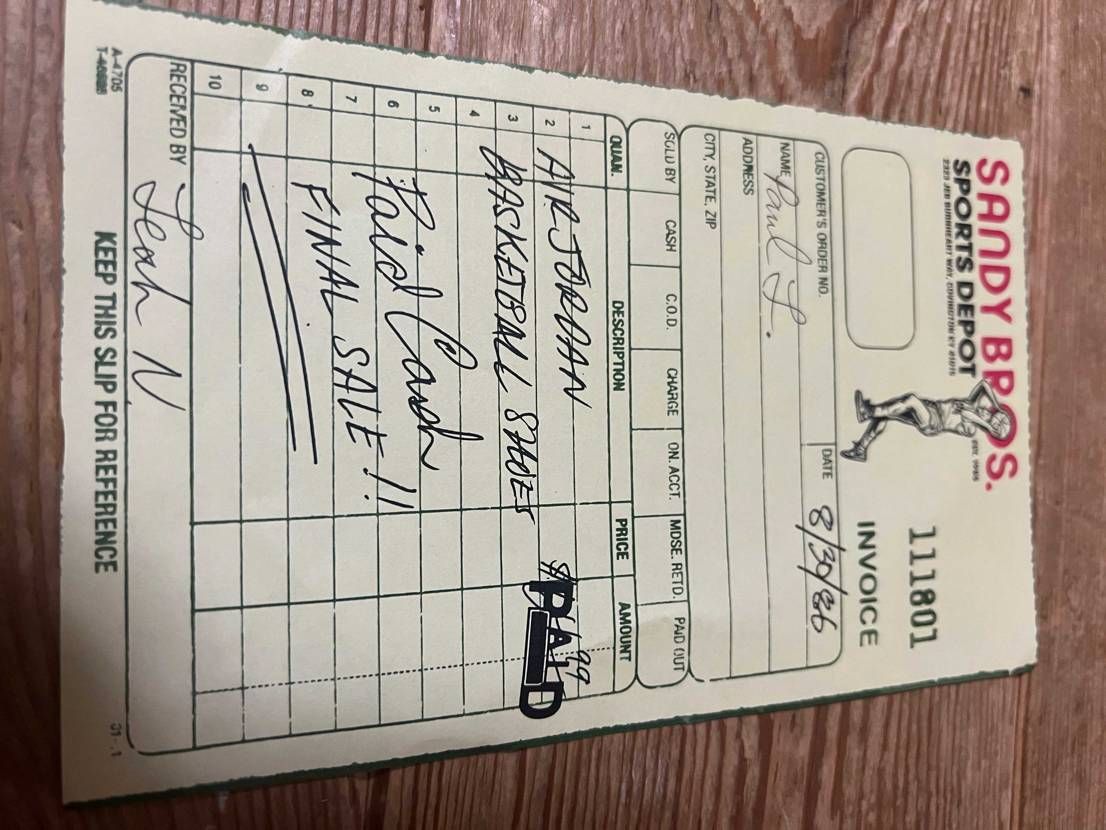 SANDY BROS.
SPORTS DEPOT
111801
INVOICE
CUSTOMER'S ORDER NO.
DATE 8/30/86
NAME Paul L.
ADDRESS
CITY, STATE, ZIP
SOLD BY CASH C.O.D. CHARGE ON. ACCT. MDSE. RETD. PAID OUT
QUAN. DESCRIPTION PRICE AMOUNT
1
2 AIR JORDAN
3 BASKETBALL SHOES
PAID
99
4
5
6 Paid Cash
7
8 FINAL SALE!!
9
10
RECEIVED BY Leah N.
A-4705
KEEP THIS SLIP FOR REFERENCE